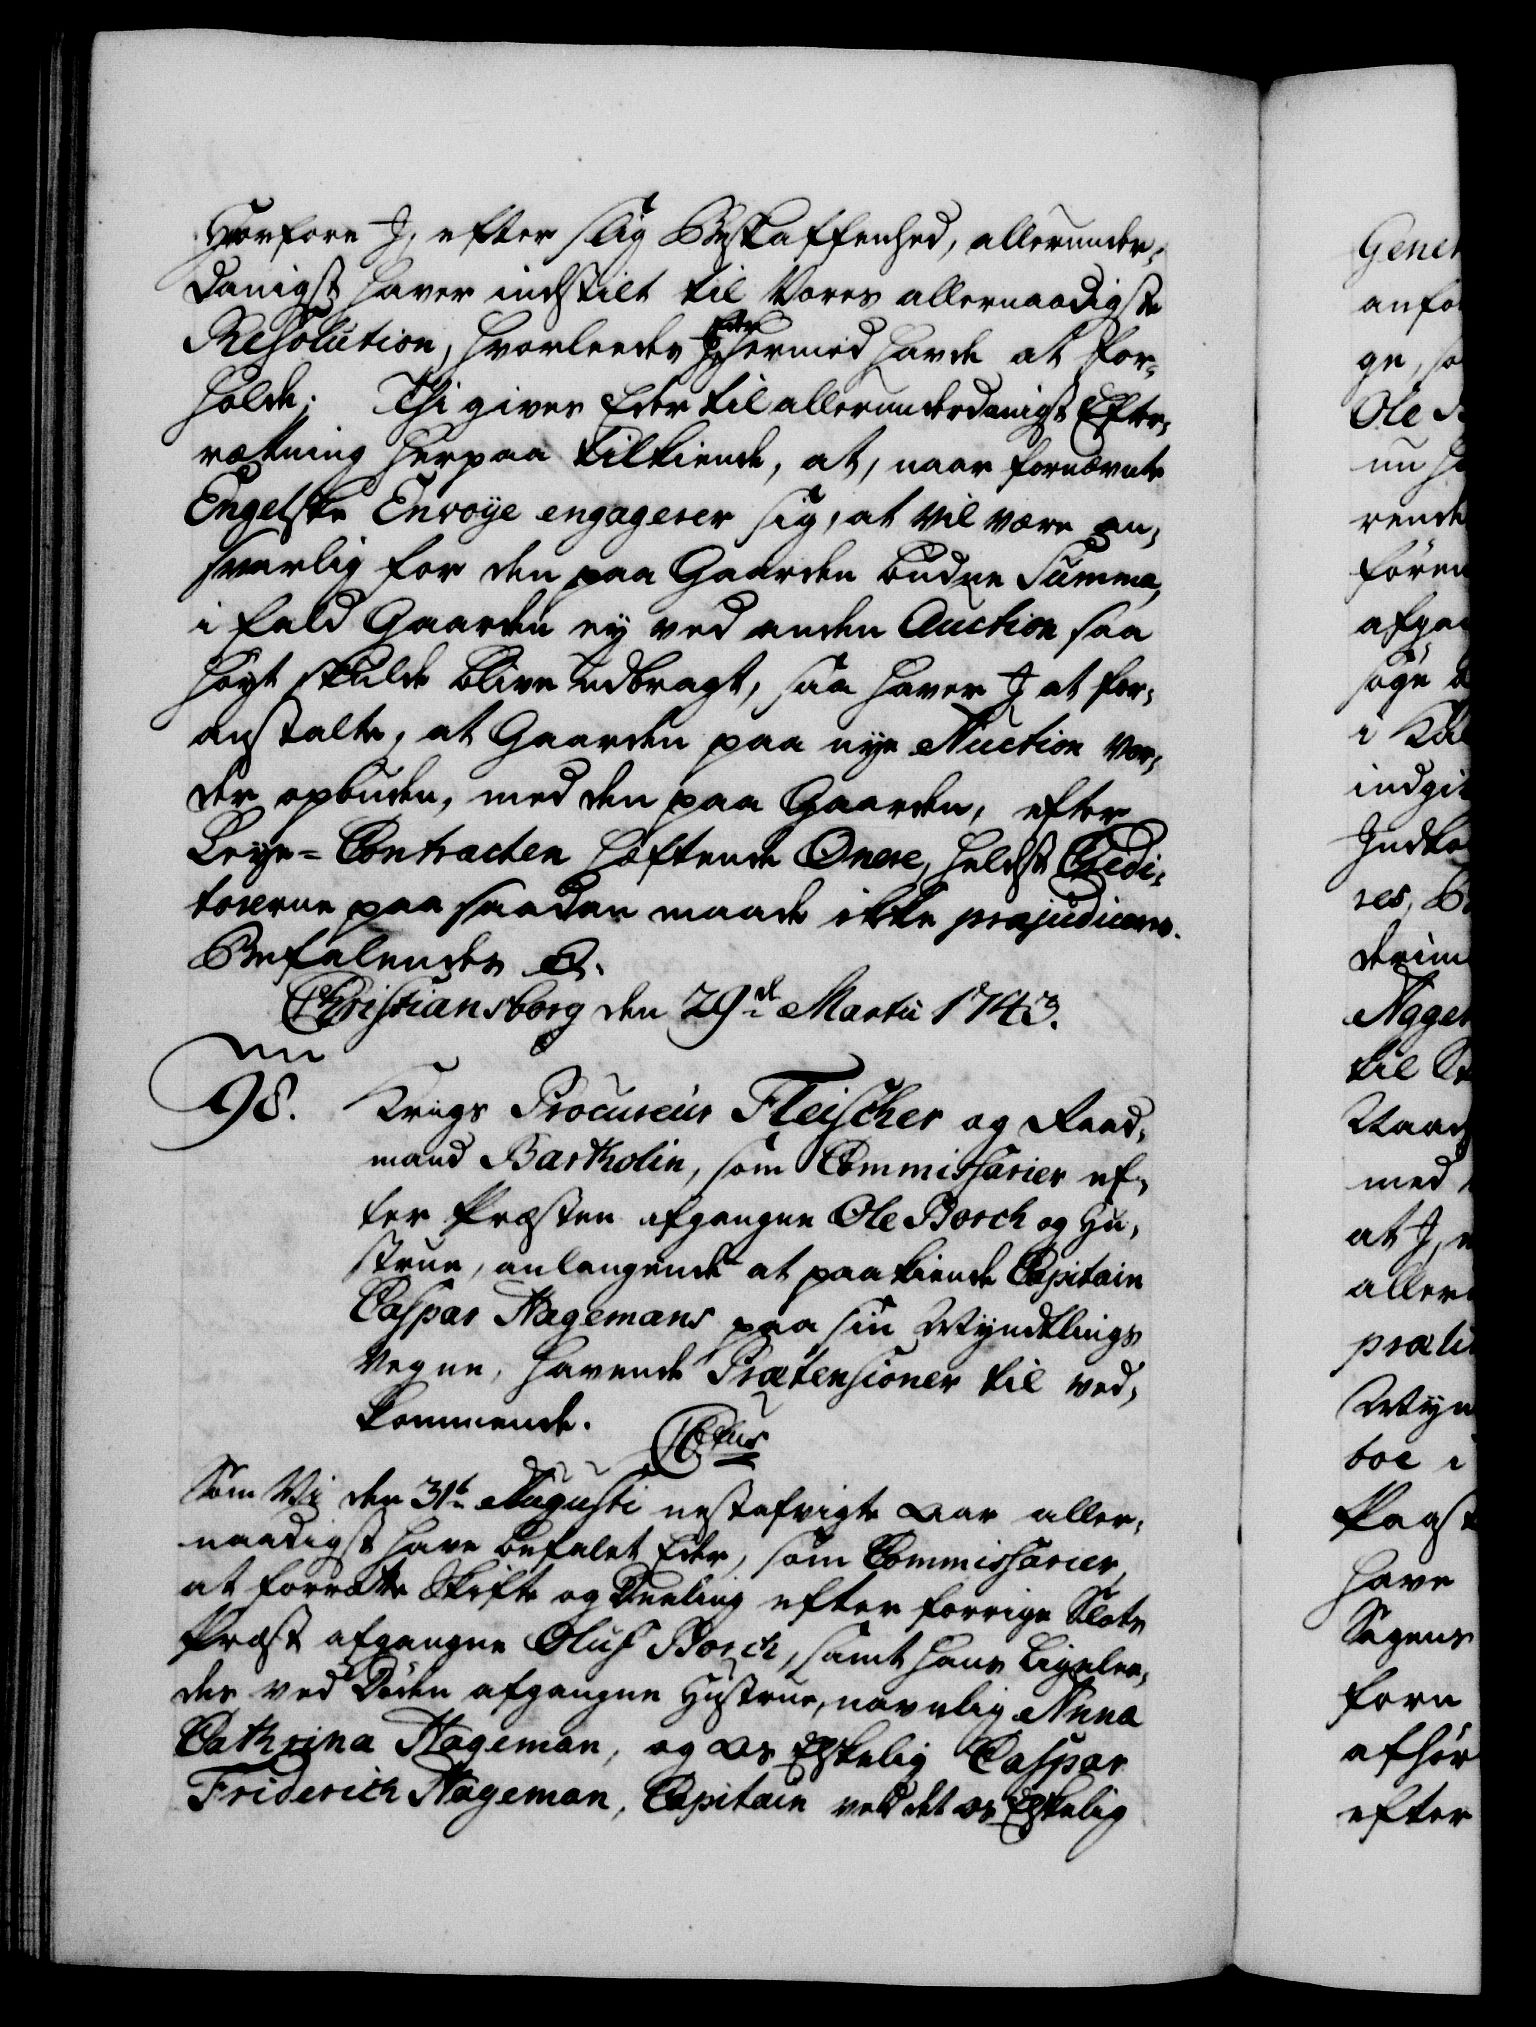 Hvorfore I, efter slig Beskaffenhed, allerunder-
danigst haver indstilt til Vores allernaadigste
Resolution, hvorleedes Eder hermed havde at for-
holde; Thi gives Eder til allerunderdanigst Efter-
rætning herpaa tilkiende, at, naar fornævnte
Engelske Envoÿe engagerer sig, at vil være an-
svarlig for den paa Gaarden budne Summa,
i fald Gaarden ey ved anden Auction saa
høyt skulde blive udbragt, saa haver I at for-
anstalte, at Gaarden paa nye Auction vor-
der opbuden, med den paa Gaarden, efter
Leye-Contracten hæftende Onere, heldst Credi-
torerne paa saadan maade ikke præjudiceres.
Befalendes &.
Christiansborg den 29de Martii 1743.
98. Krigs Procureur Fleischer og Raad-
mand Bartholin, som Commissarier ef-
ter Præsten afgangne Ole Borch og Hu-
strue, anlangende at paakiende Capitain
Caspar Hagemans paa sin Myndtlings
Vegne, havende Prætensioner til ved-
kommende.
Som Vi den 31te Augusti nestafvigte Aar aller-
naadigst have befalet Eder, som Commissarier,
at forrette Skifte og Deeling efter forrige Slots
Præst afgangne Oluf Borch, samt hans ligelee-
des ved Døden afgangne Hustrue, navnlig Anna
Cathrina Hageman, og Os Elskelig Caspar
Friderich Hageman, Capitain ved det Os Elskelig
Gener
anfør
ge, so
Ole B
nu ha
rende
fören
afgan
søge
i Kiø
indgit
Indko
res, B
derim
Agger
til
Raad
med
at I,
aller
præte
Myn
boe i
Paast
have
Sagens
forn
afhør
efter